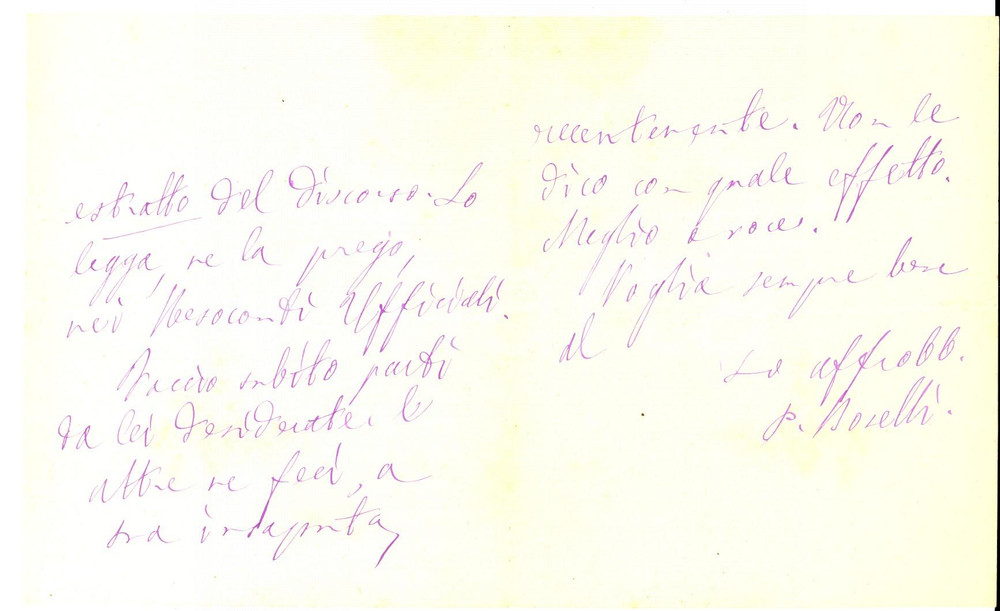 estratto del discorso. Lo
legga, ne la prego,
nei Resoconti Ufficiali.
Faccio subito parti
da lei desiderate. Le
altre ne feci, a
sua insaputa,
recentemente. Non le
dico con quale effetto.
Meglio a voce.
Voglia sempre bene
al
Suo affmobb.
P. Boselli.